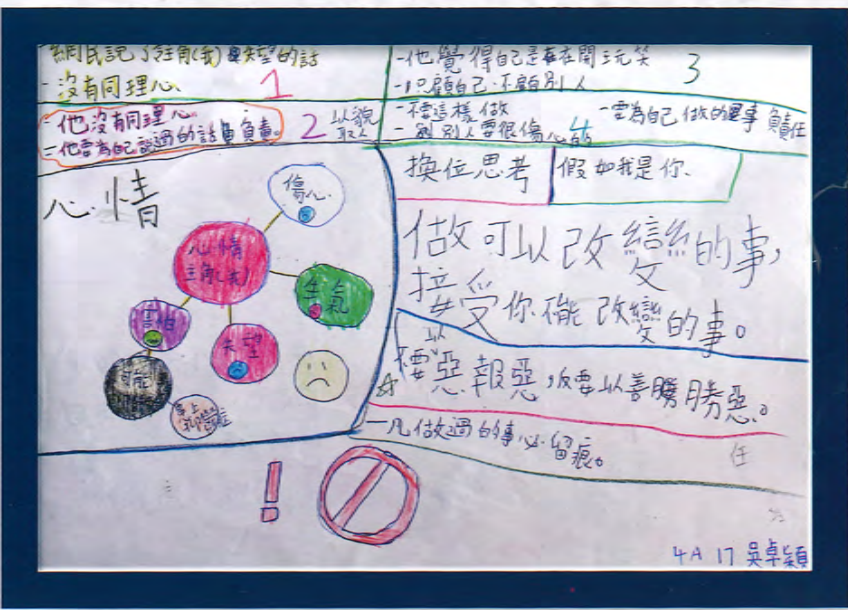 網民說了主角(我)失望的話
-沒有同理心
1
-他沒有同理心
-他要為自己說過的話負責。
2
以貌
取人
-他覺得自己是在開玩笑
-只顧自己,不顧別人
3
-不要這樣做
-別人會很傷心的
-要為自己做的事負責任
心情
傷心
心情
主角(我)
生氣
害怕
失望
可能
換位思考
假如我是你.
做可以改變的事,
接受你不能改變的事。
不要以惡報惡,反要以善勝惡。
一凡做過的事必留痕。
任
!
4A 17 吳卓穎